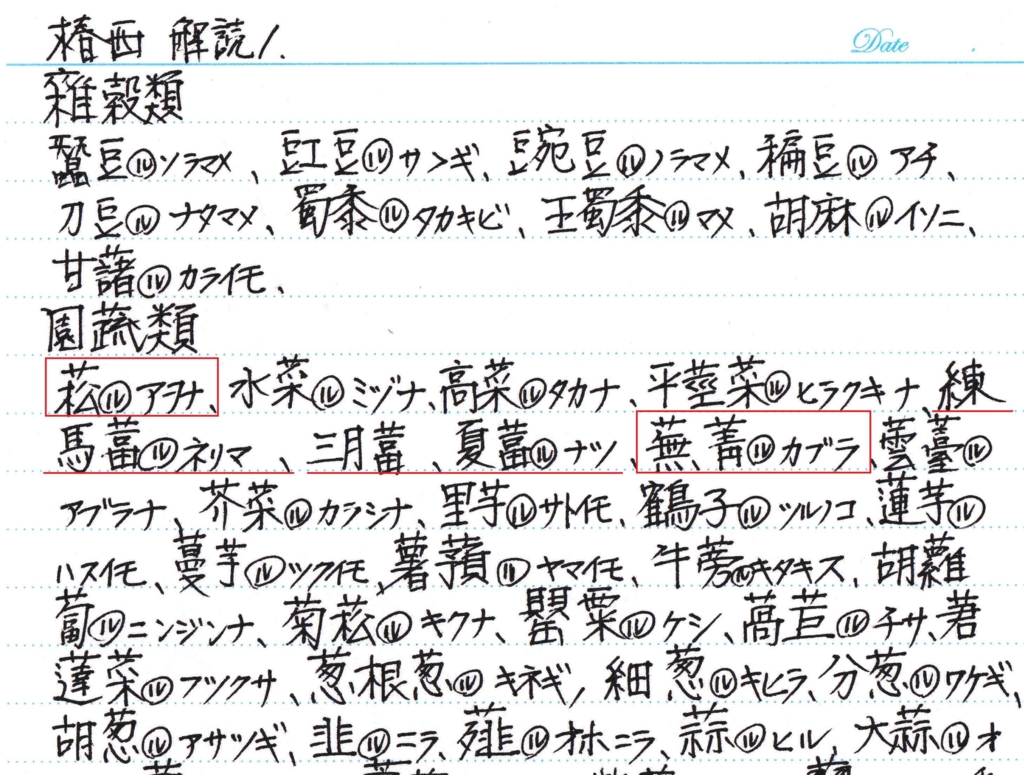 椿西 解読1.
Date
雑穀類
蠶豆㋸ソラマメ、豇豆㋸サンギ、豌豆㋸ノラマメ、稨豆㋸アチ、
刀豆㋸ナタマメ、蜀黍㋸タカキビ、王蜀黍㋸マメ、胡麻㋸イソニ、
甘藷㋸カライモ、
園蔬類
菘㋸アヲナ、水菜㋸ミヅナ、高菜㋸タカナ、平莖菜㋸ヒラクキナ、練
馬葍㋸ネリマ、三月葍、夏葍㋸ナツ、蕪菁㋸カブラ、雲薹㋸
アブラナ、芥菜㋸カラシナ、里芋㋸サトイモ、鶴子㋸ツルノコ、蓮芋㋸
ハスイモ、蔓芋㋸ツクイモ、薯蕷㋸ヤマイモ、牛蒡㋸キタキス、胡蘿
蔔㋸ニンジンナ、菊菘㋸キクナ、罌粟㋸ケシ、萵苣㋸チサ、莙
蓬菜㋸フツクサ、葱根葱㋸キネギ、細葱㋸キヒラ、分葱㋸ワケギ、
胡葱㋸アサツギ、韭㋸ニラ、㋸オホニラ、蒜㋸ヒル、大蒜㋸オ